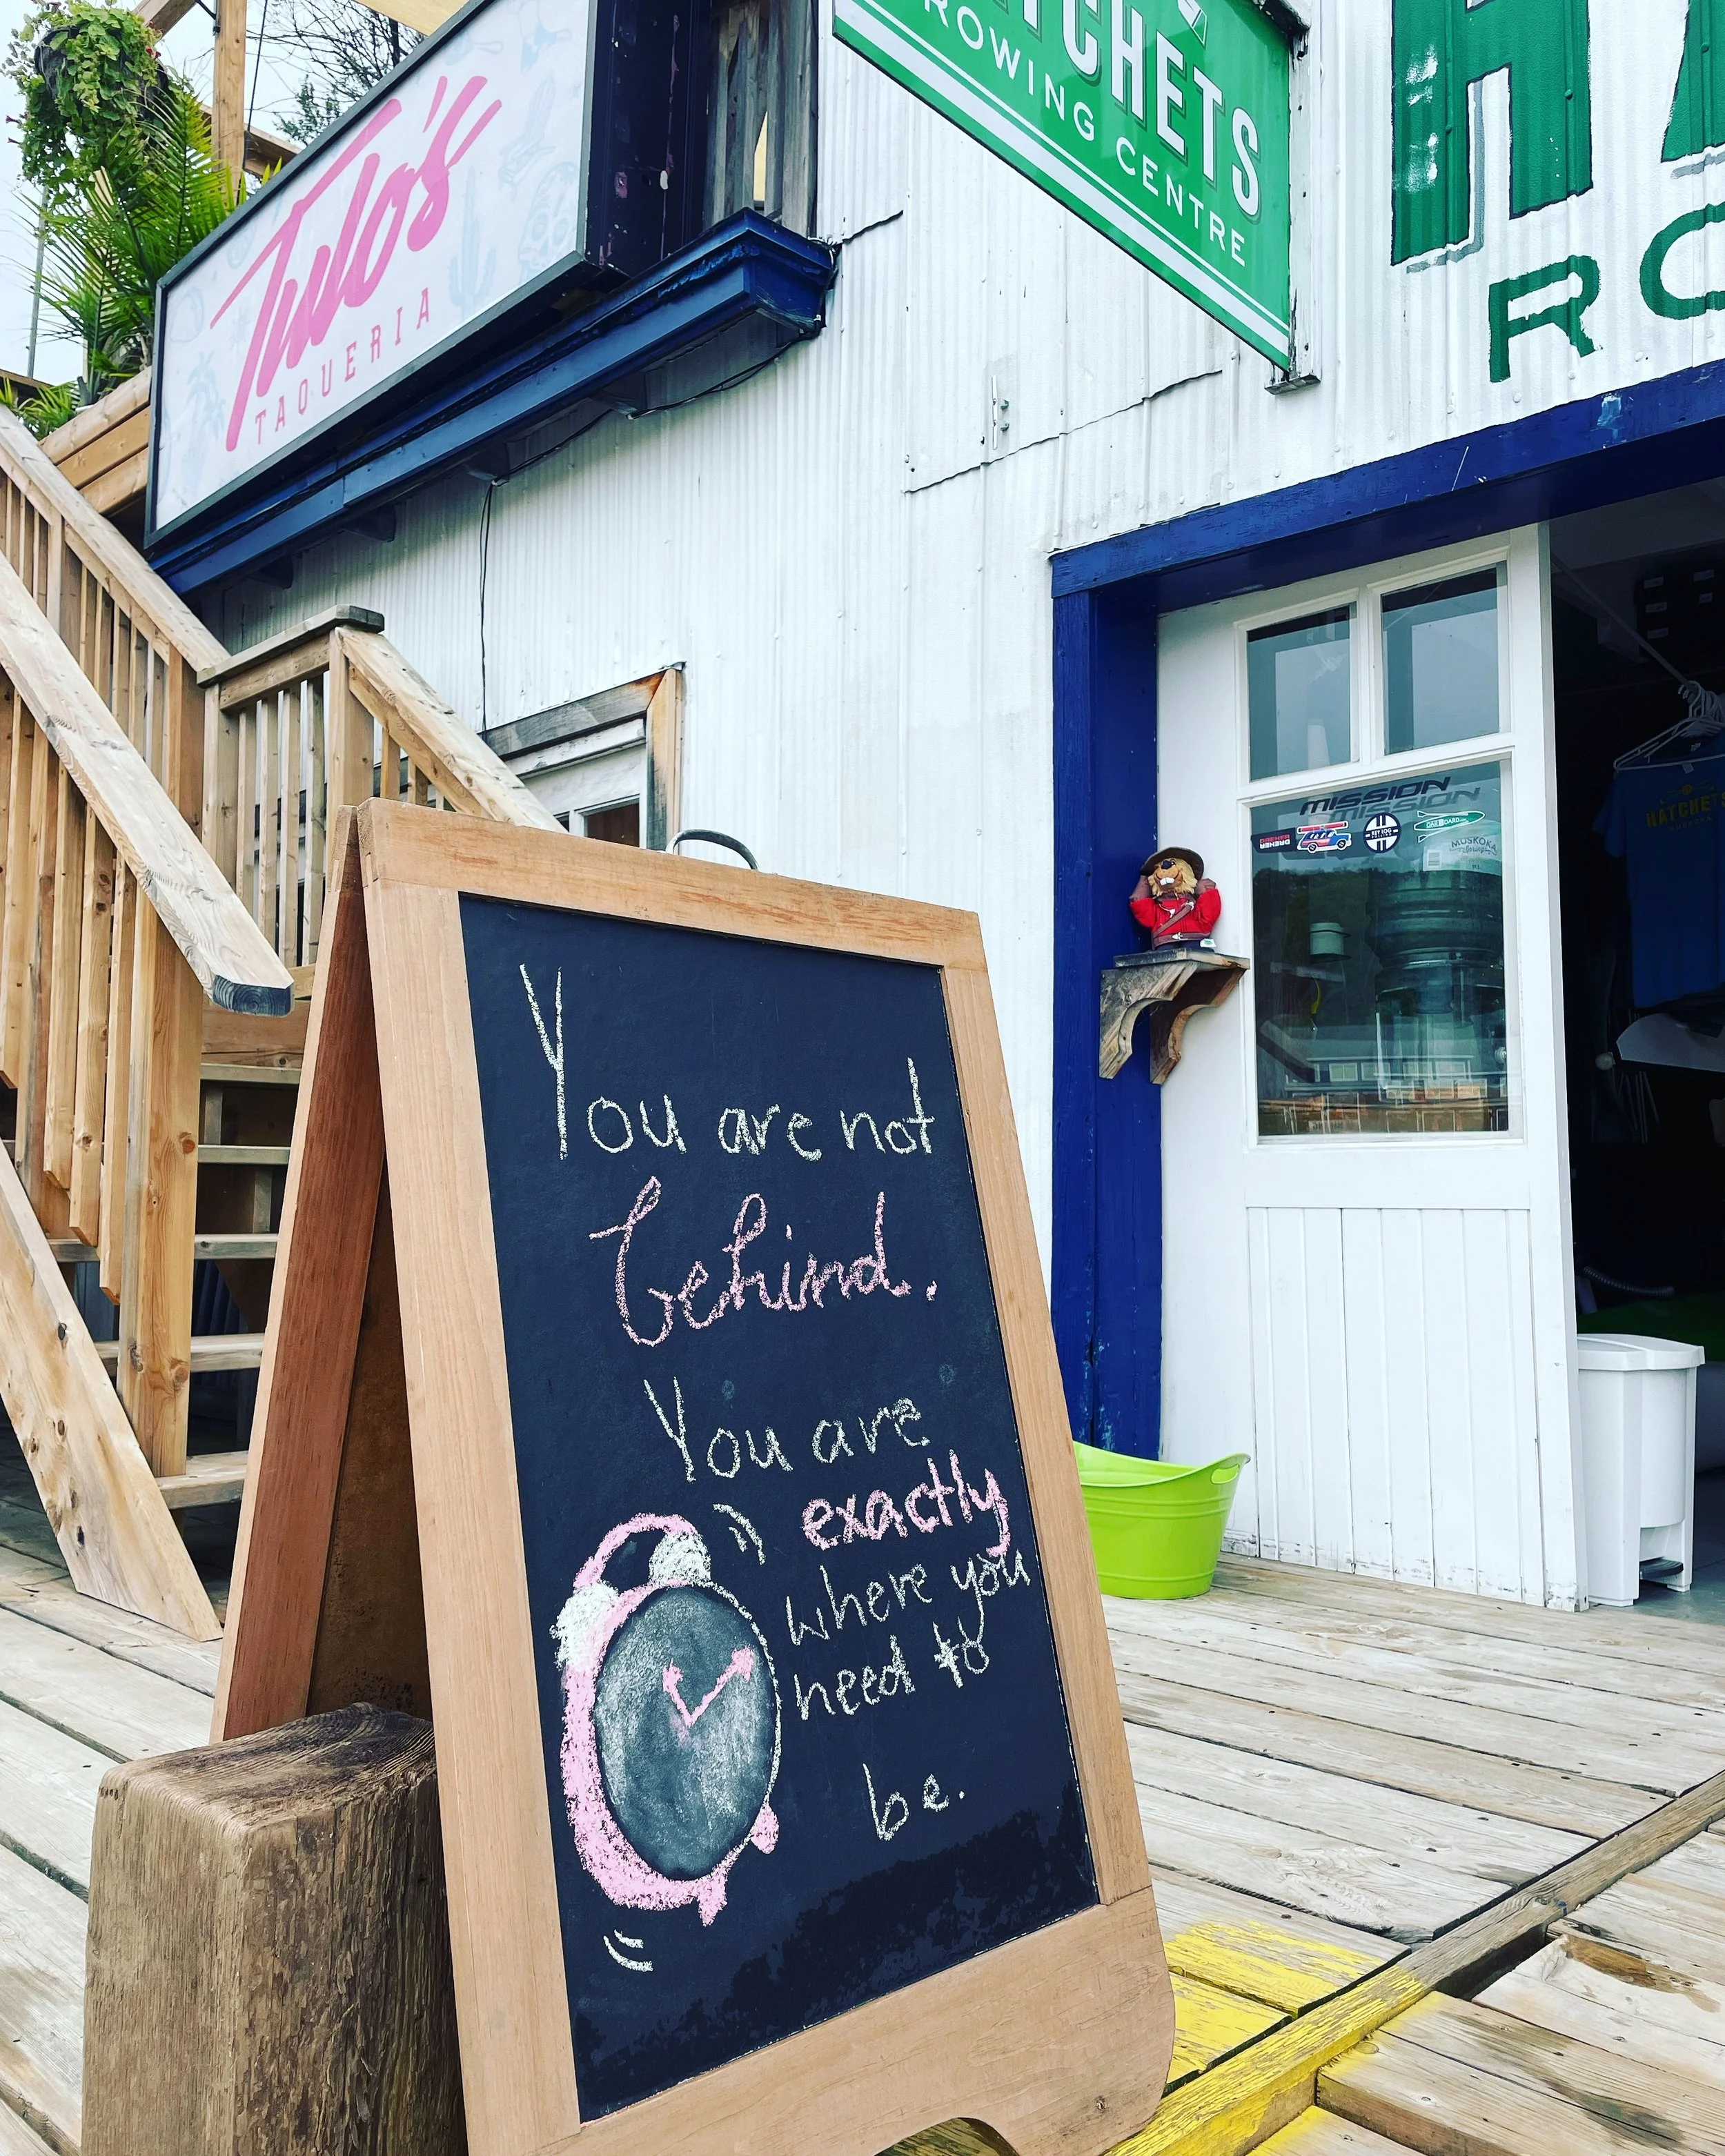 Tulo's
TAQUERIA
ROWING CENTRE
RO
MISSION
DREHER
KEY LOG
MUSKOKA
HATCHETS
You are not
behind.
You are
exactly
where you
need to
be.